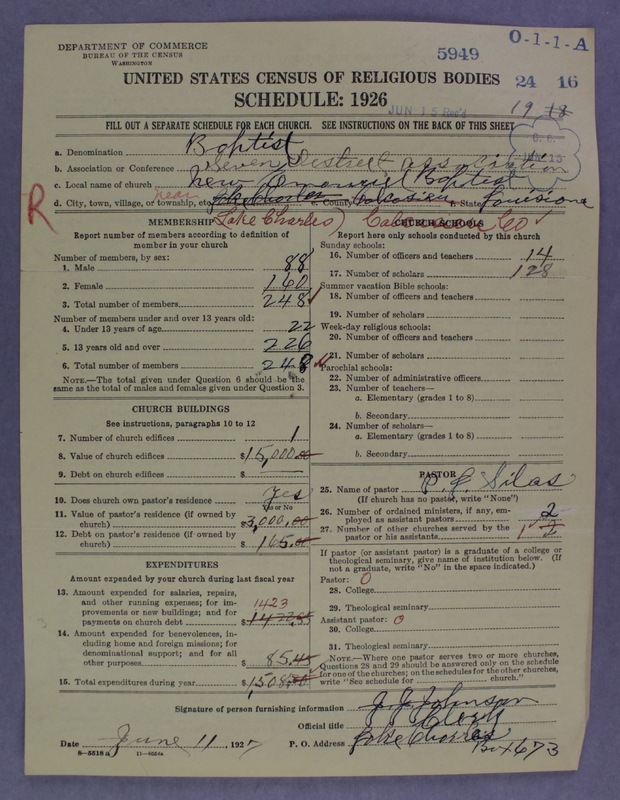 DEPARTMENT OF COMMERCE
BUREAU OF THE CENSUS
WASHINGTON
5949
O-1-1-A
UNITED STATES CENSUS OF RELIGIOUS BODIES
24 16
SCHEDULE: 1926
JUN 15 Rec'd
19 18
FILL OUT A SEPARATE SCHEDULE FOR EACH CHURCH. SEE INSTRUCTIONS ON THE BACK OF THIS SHEET
a. Denomination Baptist
b. Association or Conference Seven District association
c. Local name of church New Baptist
d. City, town, village, or township, etc. near Lake Charles c. County Calcasieu f. State Louisiana
R
Lake Charles) Co
MEMBERSHIP
Report number of members according to definition of member in your church
Number of members, by sex:
1. Male 88
2. Female 160
3. Total number of members 248
Number of members under and over 13 years old:
4. Under 13 years of age 22
5. 13 years old and over 226
6. Total number of members 248
NOTE.—The total given under Question 6 should be the same as the total of males and females given under Question 3.
CHURCH BUILDINGS
See instructions, paragraphs 10 to 12
7. Number of church edifices 1
8. Value of church edifices $15,000.00
9. Debt on church edifices $
10. Does church own pastor's residence yes
Yes or No
11. Value of pastor's residence (if owned by church) $3,000.00
12. Debt on pastor's residence (if owned by church) $165.00
EXPENDITURES
Amount expended by your church during last fiscal year
13. Amount expended for salaries, repairs, and other running expenses; for improvements or new buildings; and for payments on church debt 1423 $
14. Amount expended for benevolences, including home and foreign missions; for denominational support; and for all other purposes $85.45
15. Total expenditures during year $1,508
CHURCH SCHOOLS
Report here only schools conducted by this church
Sunday schools:
16. Number of officers and teachers 14
17. Number of scholars 128
Summer vacation Bible schools:
18. Number of officers and teachers
19. Number of scholars
Week-day religious schools:
20. Number of officers and teachers
21. Number of scholars
Parochial schools:
22. Number of administrative officers
23. Number of teachers—
a. Elementary (grades 1 to 8)
b. Secondary
24. Number of scholars—
a. Elementary (grades 1 to 8)
b. Secondary
PASTOR
25. Name of pastor Silas
(If church has no pastor, write "None")
26. Number of ordained ministers, if any, employed as assistant pastors 2
27. Number of other churches served by the pastor or his assistants 1
If pastor (or assistant pastor) is a graduate of a college or theological seminary, give name of institution below. (If not a graduate, write "No" in the space indicated.)
Pastor: O
28. College
29. Theological seminary
Assistant pastor: O
30. College
31. Theological seminary
NOTE.—Where one pastor serves two or more churches, Questions 28 and 29 should be answered only on the schedule for one of the churches; on the schedules for the other churches, write "See schedule for church."
Signature of person furnishing information J. J. Johnson
Official title Clerk
Date June 11, 1927
P. O. Address Lake Charles
Box 673
8—5518a
11—8664a